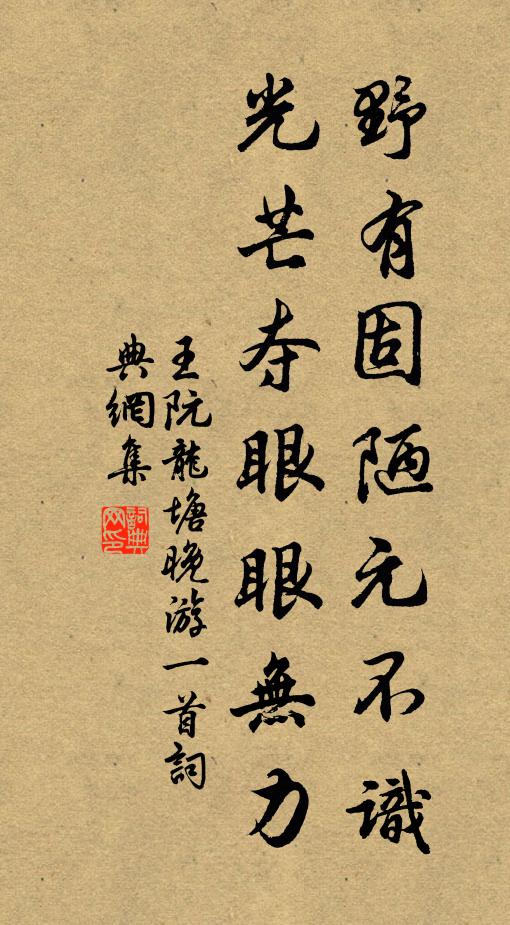 野有固陋元不識
光芒夺眼眼無力
王阮龍塘晚游一首詞
典網集
詞典网印